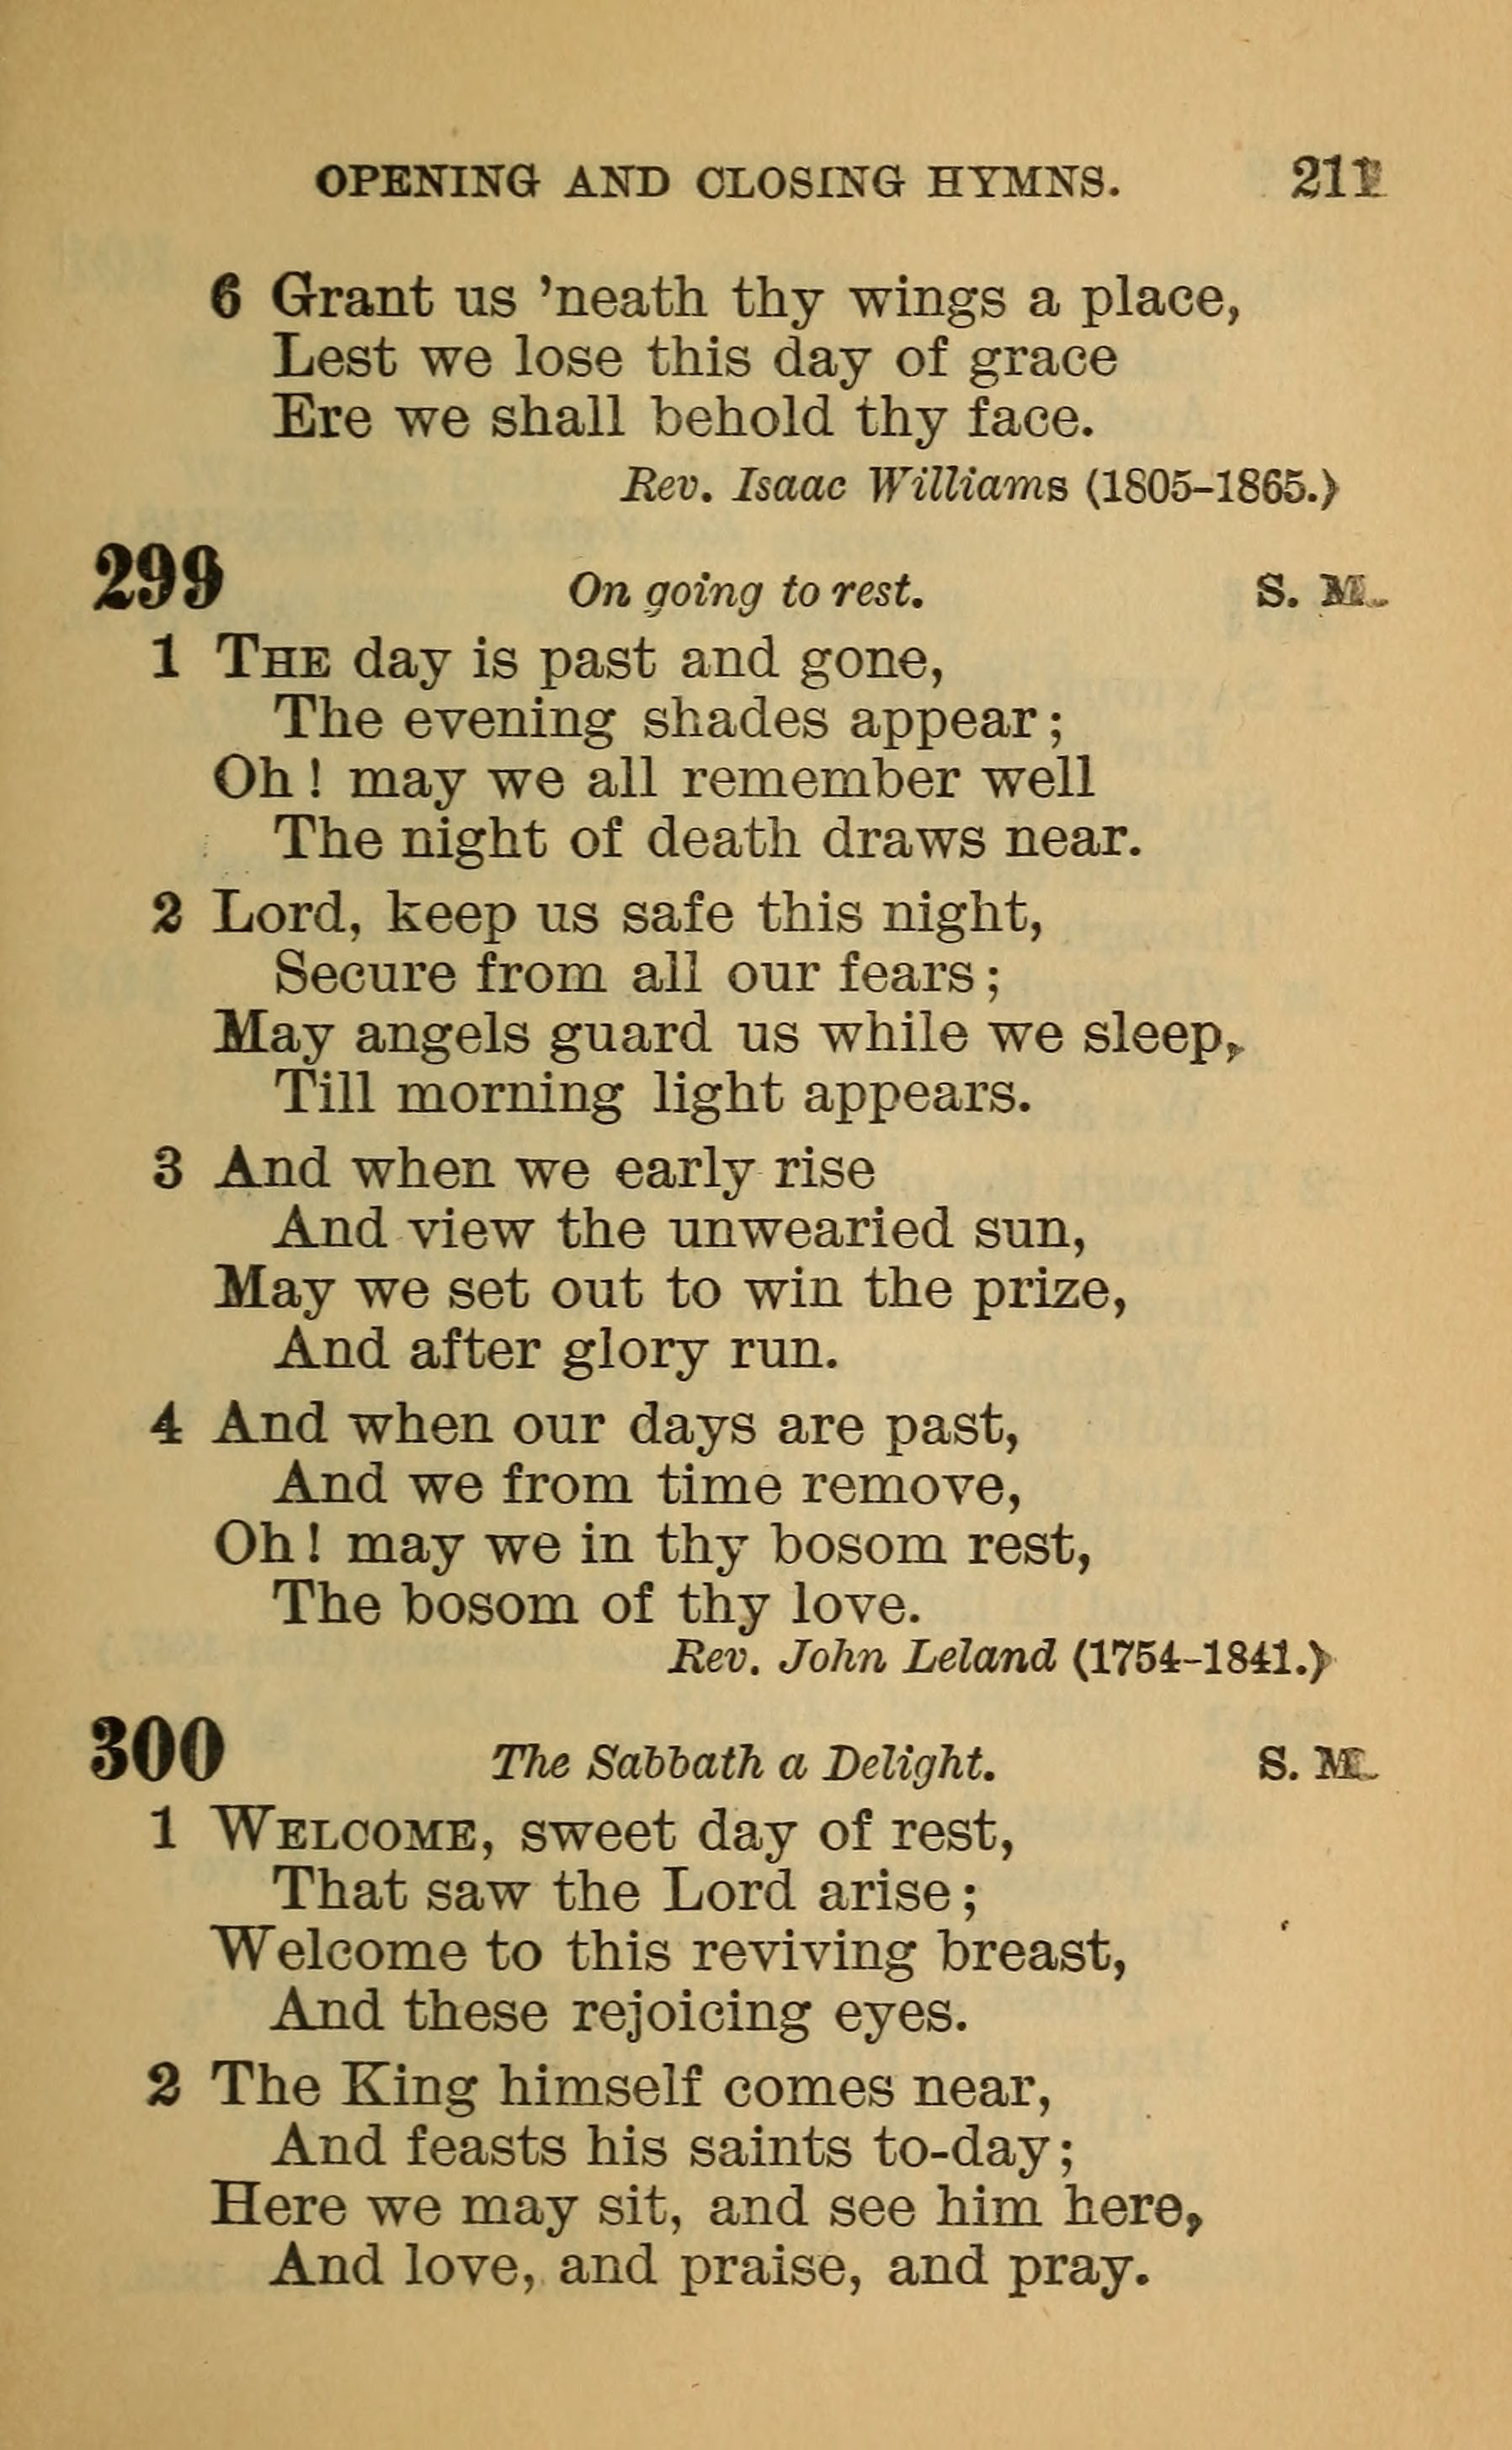 OPENING AND CLOSING HYMNS. 211
6 Grant us ’neath thy wings a place,
Lest we lose this day of grace
Ere we shall behold thy face.
Rev. Isaac Williams (1805-1865.)
299 On going to rest. S. M.
1 THE day is past and gone,
The evening shades appear;
Oh! may we all remember well
The night of death draws near.
2 Lord, keep us safe this night,
Secure from all our fears;
May angels guard us while we sleep,
Till morning light appears.
3 And when we early rise
And view the unwearied sun,
May we set out to win the prize,
And after glory run.
4 And when our days are past,
And we from time remove,
Oh! may we in thy bosom rest,
The bosom of thy love.
Rev. John Leland (1754-1841.)
300 The Sabbath a Delight. S. M.
1 WELCOME, sweet day of rest,
That saw the Lord arise;
Welcome to this reviving breast,
And these rejoicing eyes.
2 The King himself comes near,
And feasts his saints to-day;
Here we may sit, and see him here,
And love, and praise, and pray.